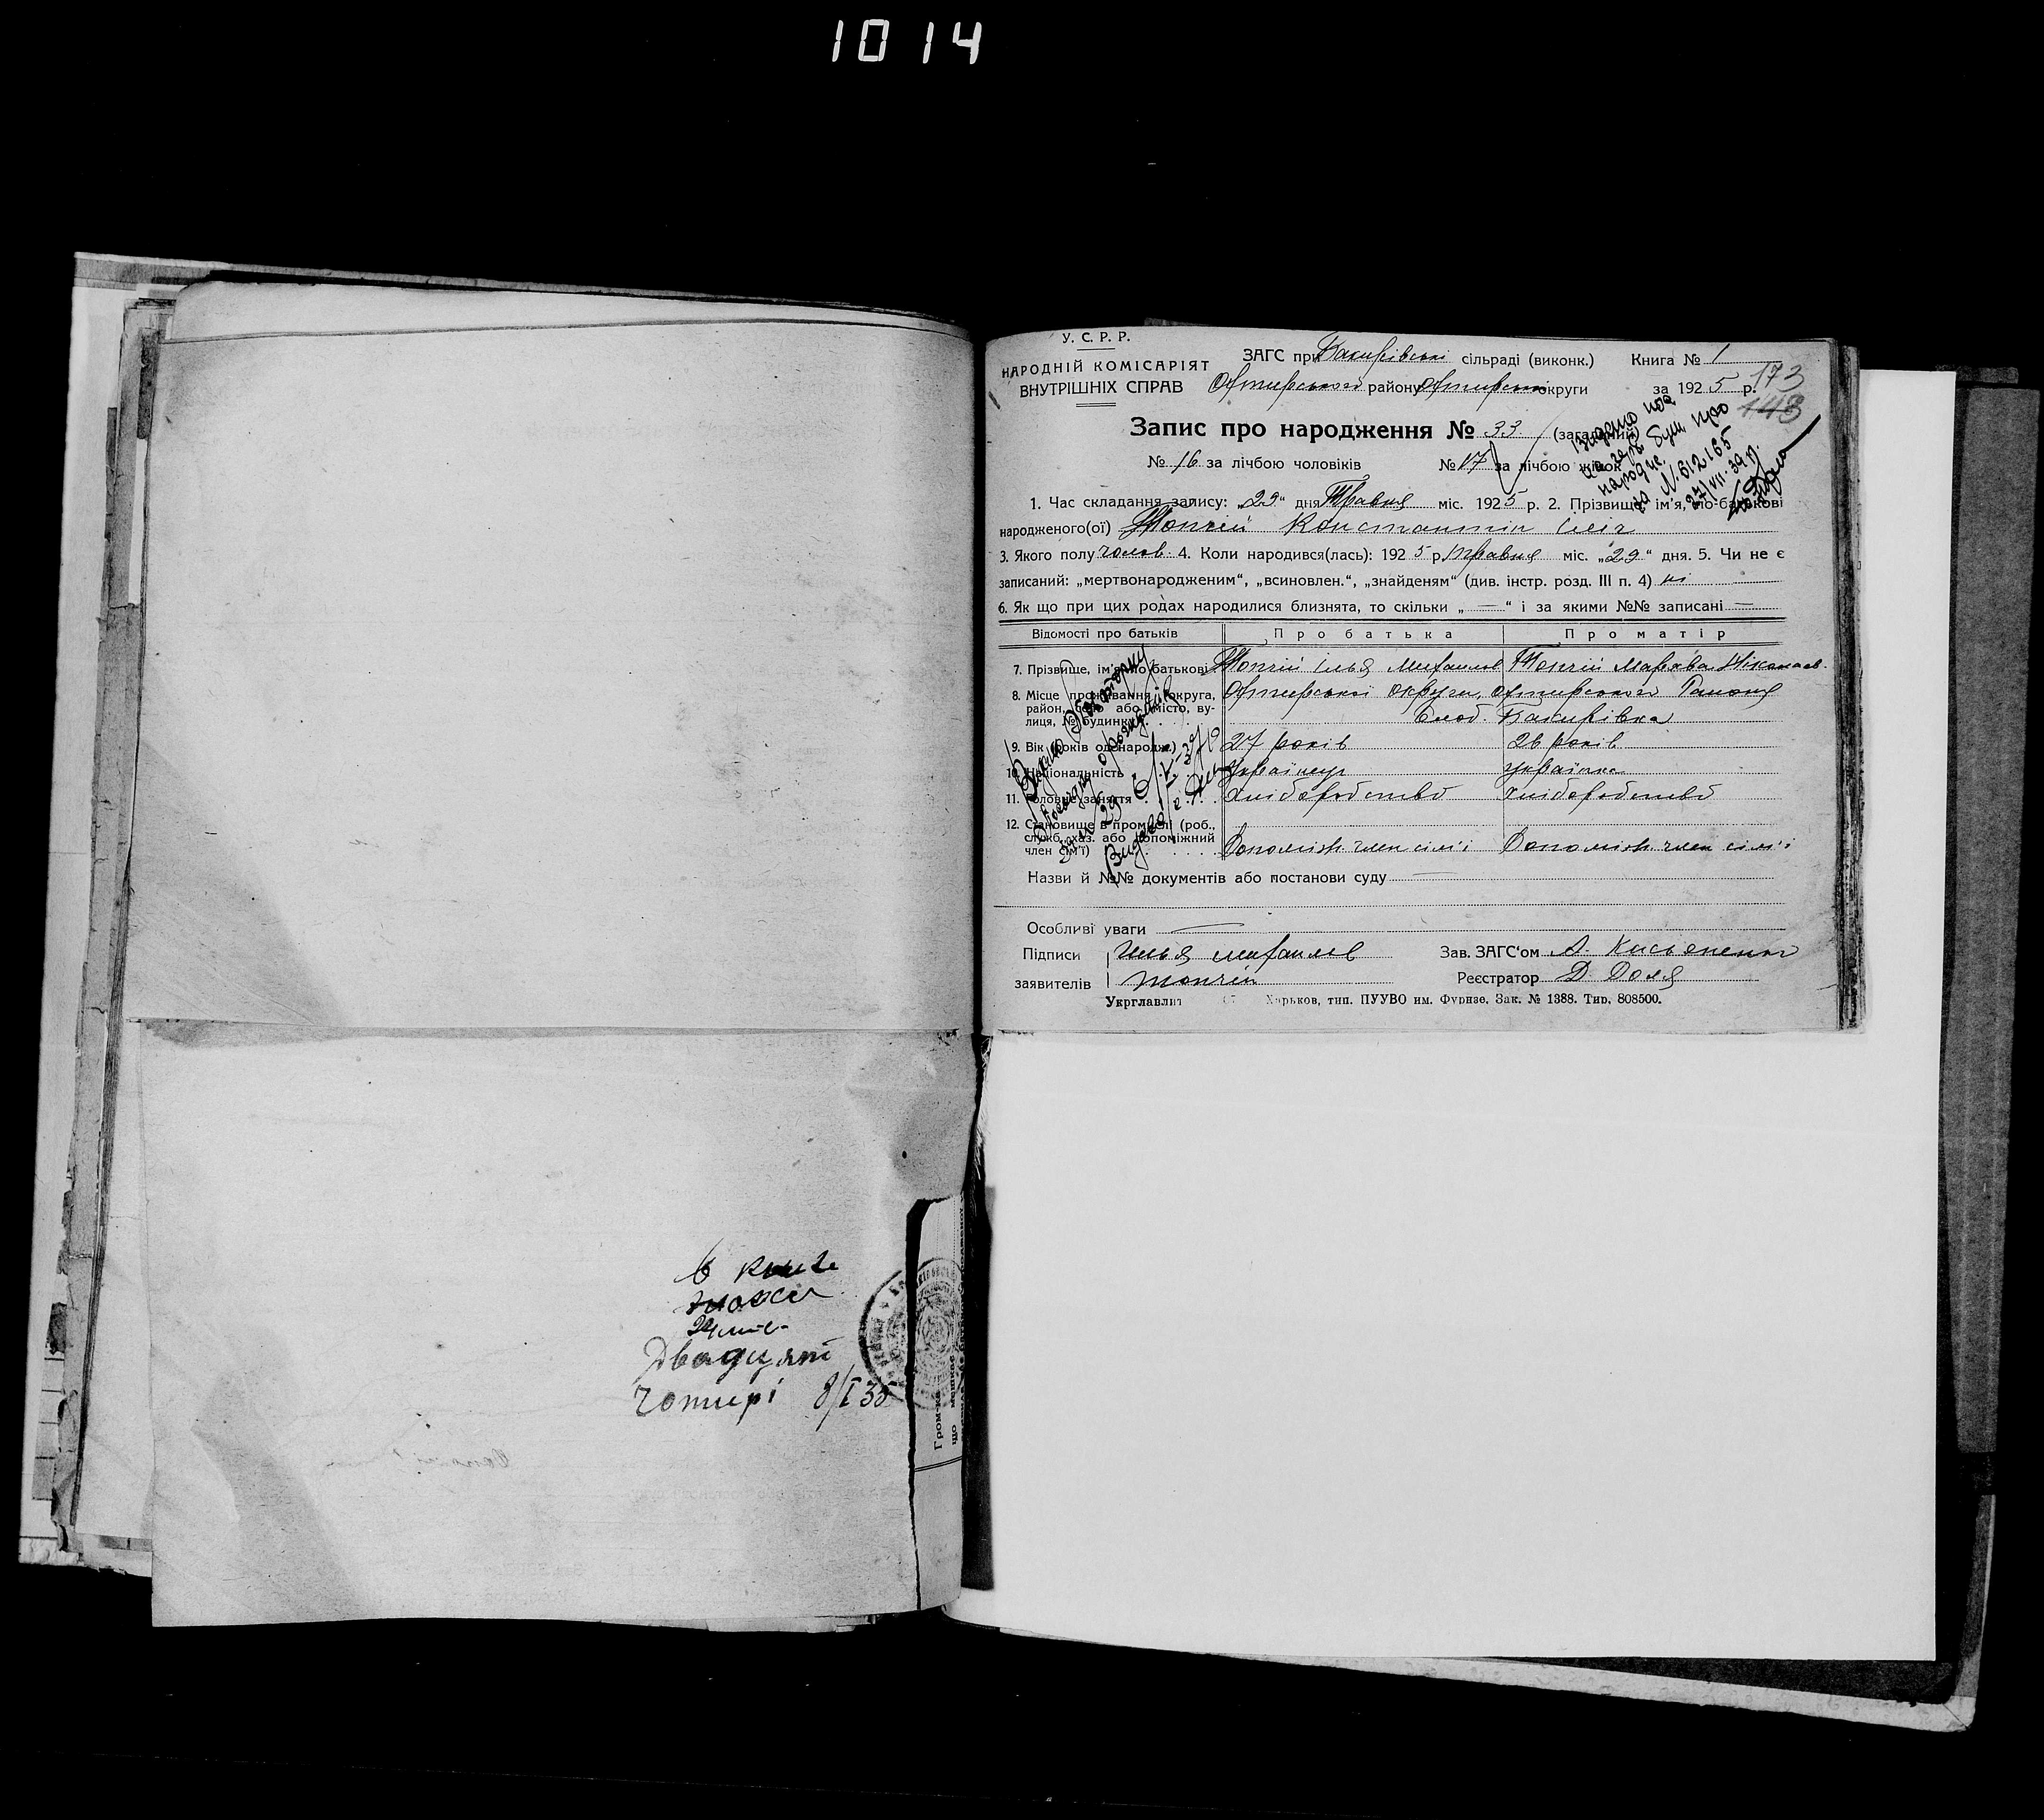 1014
У. С. Р. Р.
НАРОДНІЙ КОМІСАРІЯТ
ВНУТРІШНІХ СПРАВ
ЗАГС при Бакирівські сільраді (виконк.) Книга № 1
Охтирського району Охтирсько округи за 1925 р.
173
143
Запис про народження № 33 (загальний)
№ 16 за лічбою чоловіків № 17 за лічбою жінок
Видано
N. 612165
27/VII-39 р.
1. Час складання запису: „29“ дня Травня міс. 1925 р. 2. Прізвище, ім'я, по-батькові
народженого(ої) Топчій Константін Ілліч
3. Якого полу чолов. 4. Коли народився(лась): 1925 р. травня міс. „29“ дня. 5. Чи не є
записаний: „мертвонародженим“, „всиновлен.“, „знайденям“ (див. інстр. розд. III п. 4) ні
6. Як що при цих родах народилися близнята, то скільки „ — “ і за якими №№ записані —
Відомості про батьків Про батька Про матір
7. Прізвище, ім'я, по батькові Топчій Ілья Михаилов Топчій Марфа Ніколаев.
8. Місце проживання (округа, район, село або місто, вулиця, № будинку) Охтирської округи, Охтирського Району
Слоб. Бакирівка
9. Вік (років од народж.) 27 років 26 років
10. Національність Українец українка
11. Головне заняття хліборобство хліборобство
12. Становище в промислі (роб., служб., хаз. або допоміжний член сім'ї) Допоміж. член сім'і Допоміж. член сім'і
Назви й №№ документів або постанови суду —
Особливі уваги —
Підписи Илья Михаилов Зав. ЗАГС'ом А. Касьяненко
заявителів Топчій Реєстратор Д. Доля
Укрглавліт Харьков, тип. ПУУВО им. Фрунзе. Зак. № 1388. Тир. 808500.
В книзе
Двадцят
чотирі 8/I 35
Гром-ка
що мешкає